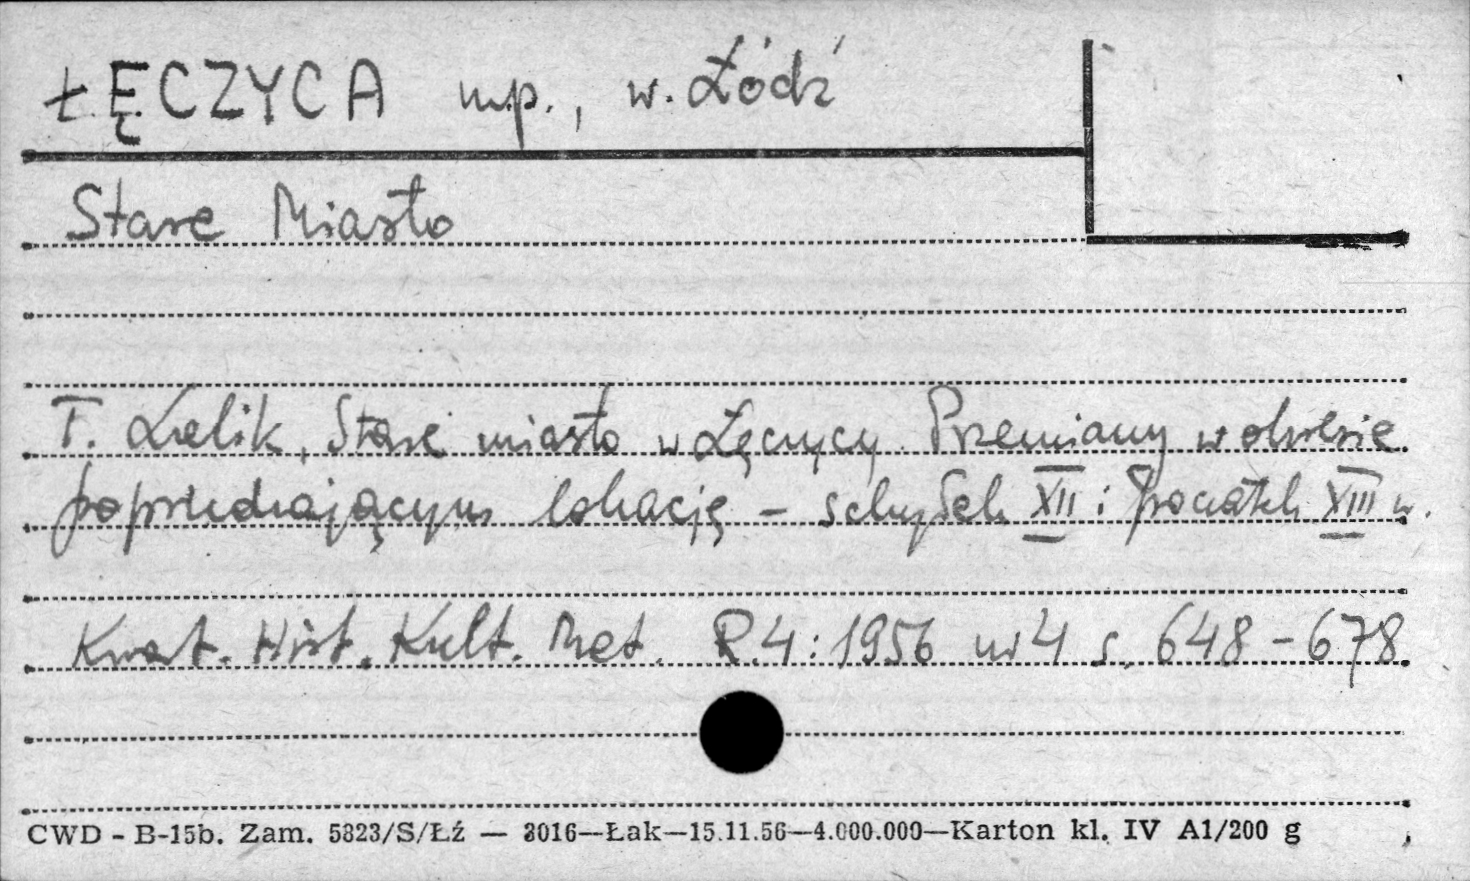 ŁĘCZYCA mp., w. Łódź
Stare Miasto
T. Lalik, Stare miasto w Łęczycy. Przemiany w okresie
poprzedzającym lokację – schyłek XII i początek XIII w.
Kwart. Hist. Kult. Mat. R.4:1956 nr 4 s. 648-678.
CWD - B-15b. Zam. 5823/S/Łź — 3016—Łak—15.11.56—4.000.000—Karton kl. IV A1/200 g